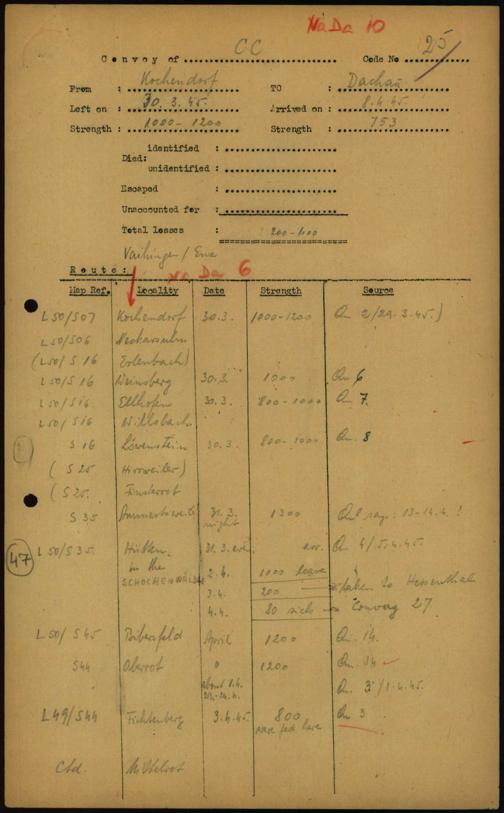 NaDa 10
CC
25
Convoy of .......... Code No ..........
From : Kochendorf TO : Dachau
Left on : 30.3.45. Arrived on : 8.4.45
Strength : 1000-1200 Strength : 753
identified : ..........
Died:
unidentified : ..........
Escaped : ..........
Unaccounted for : ..........
Total losses : 200-400
Vaihingen / Enz
Route: NaDa 6
Map Ref. Locality Date Strength Source
L50/S07 Kochendorf 30.3. 1000-1200 Qn 2/29.3.45.)
L50/S06 Neckarsulm
(L50/S 16 Erlenbach)
L50/S 16 Weinsberg 30.3. 1000 Qn 6
L50/S16 Ellhofen 30.3. 800-1000 Qn 7.
L50/S16 Willsbach
S 16 Löwenstein 30.3. 800-1000 Qn 8
( S 25 Hirrweiler)
( S 25. Finsterrot
S 35 Ammertsweiler 31.3. night 1300 13-14.4. !
47
L50/S35. Hütten. 31.3. eve. arr. Qn 4/5.4.45.
in the SCHOCHENWÄLDER 2.4. 1000 leave
3.4. 200 taken to Hessenthal
4.4. 20 sick Convoy 27
L50/S45 Bibersfeld April 1200 Qn 14.
S44 Oberrot " 1200 Qn 14
about 1.4. Qn. 3/1.4.45.
L49/S44 Fichtenberg 3.4.45. 800 Qn 3
were fed here
Ctd. Mittelrot